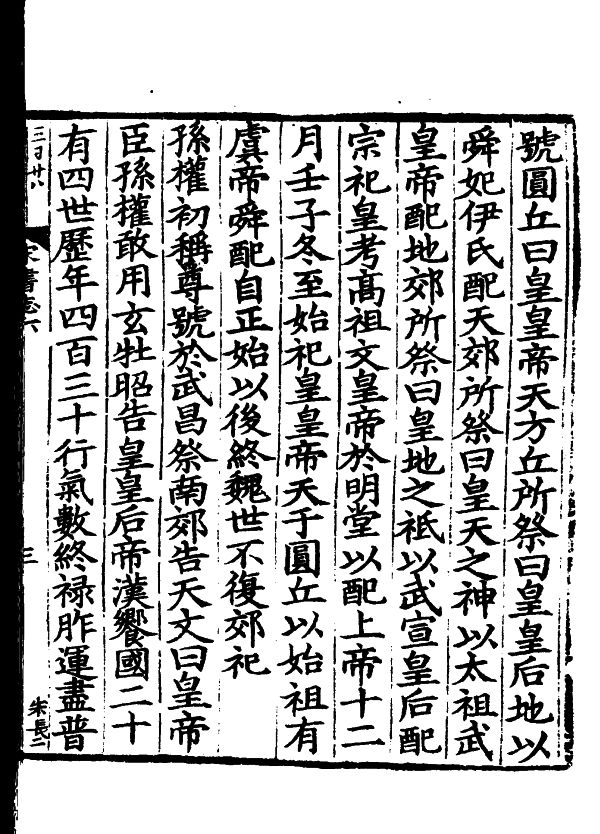 號圓丘曰皇皇帝天方丘所祭曰皇皇后地以
舜妃伊氏配天郊所祭曰皇天之神以太祖武
皇帝配地郊所祭曰皇地之祇以武宣皇后配
宗祀皇考髙祖文皇帝於明堂以配上帝十二
月壬子冬至始祀皇皇帝天于圓丘以始祖有
虞帝舜配自正始以後終魏世不復郊祀
孫權初稱尊號於武昌祭南郊告天文曰皇帝
臣孫權敢用玄牡昭告皇皇后帝漢饗國二十
有四世歷年四百三十行氣數終禄胙運盡普
宋書志六
三
朱長二